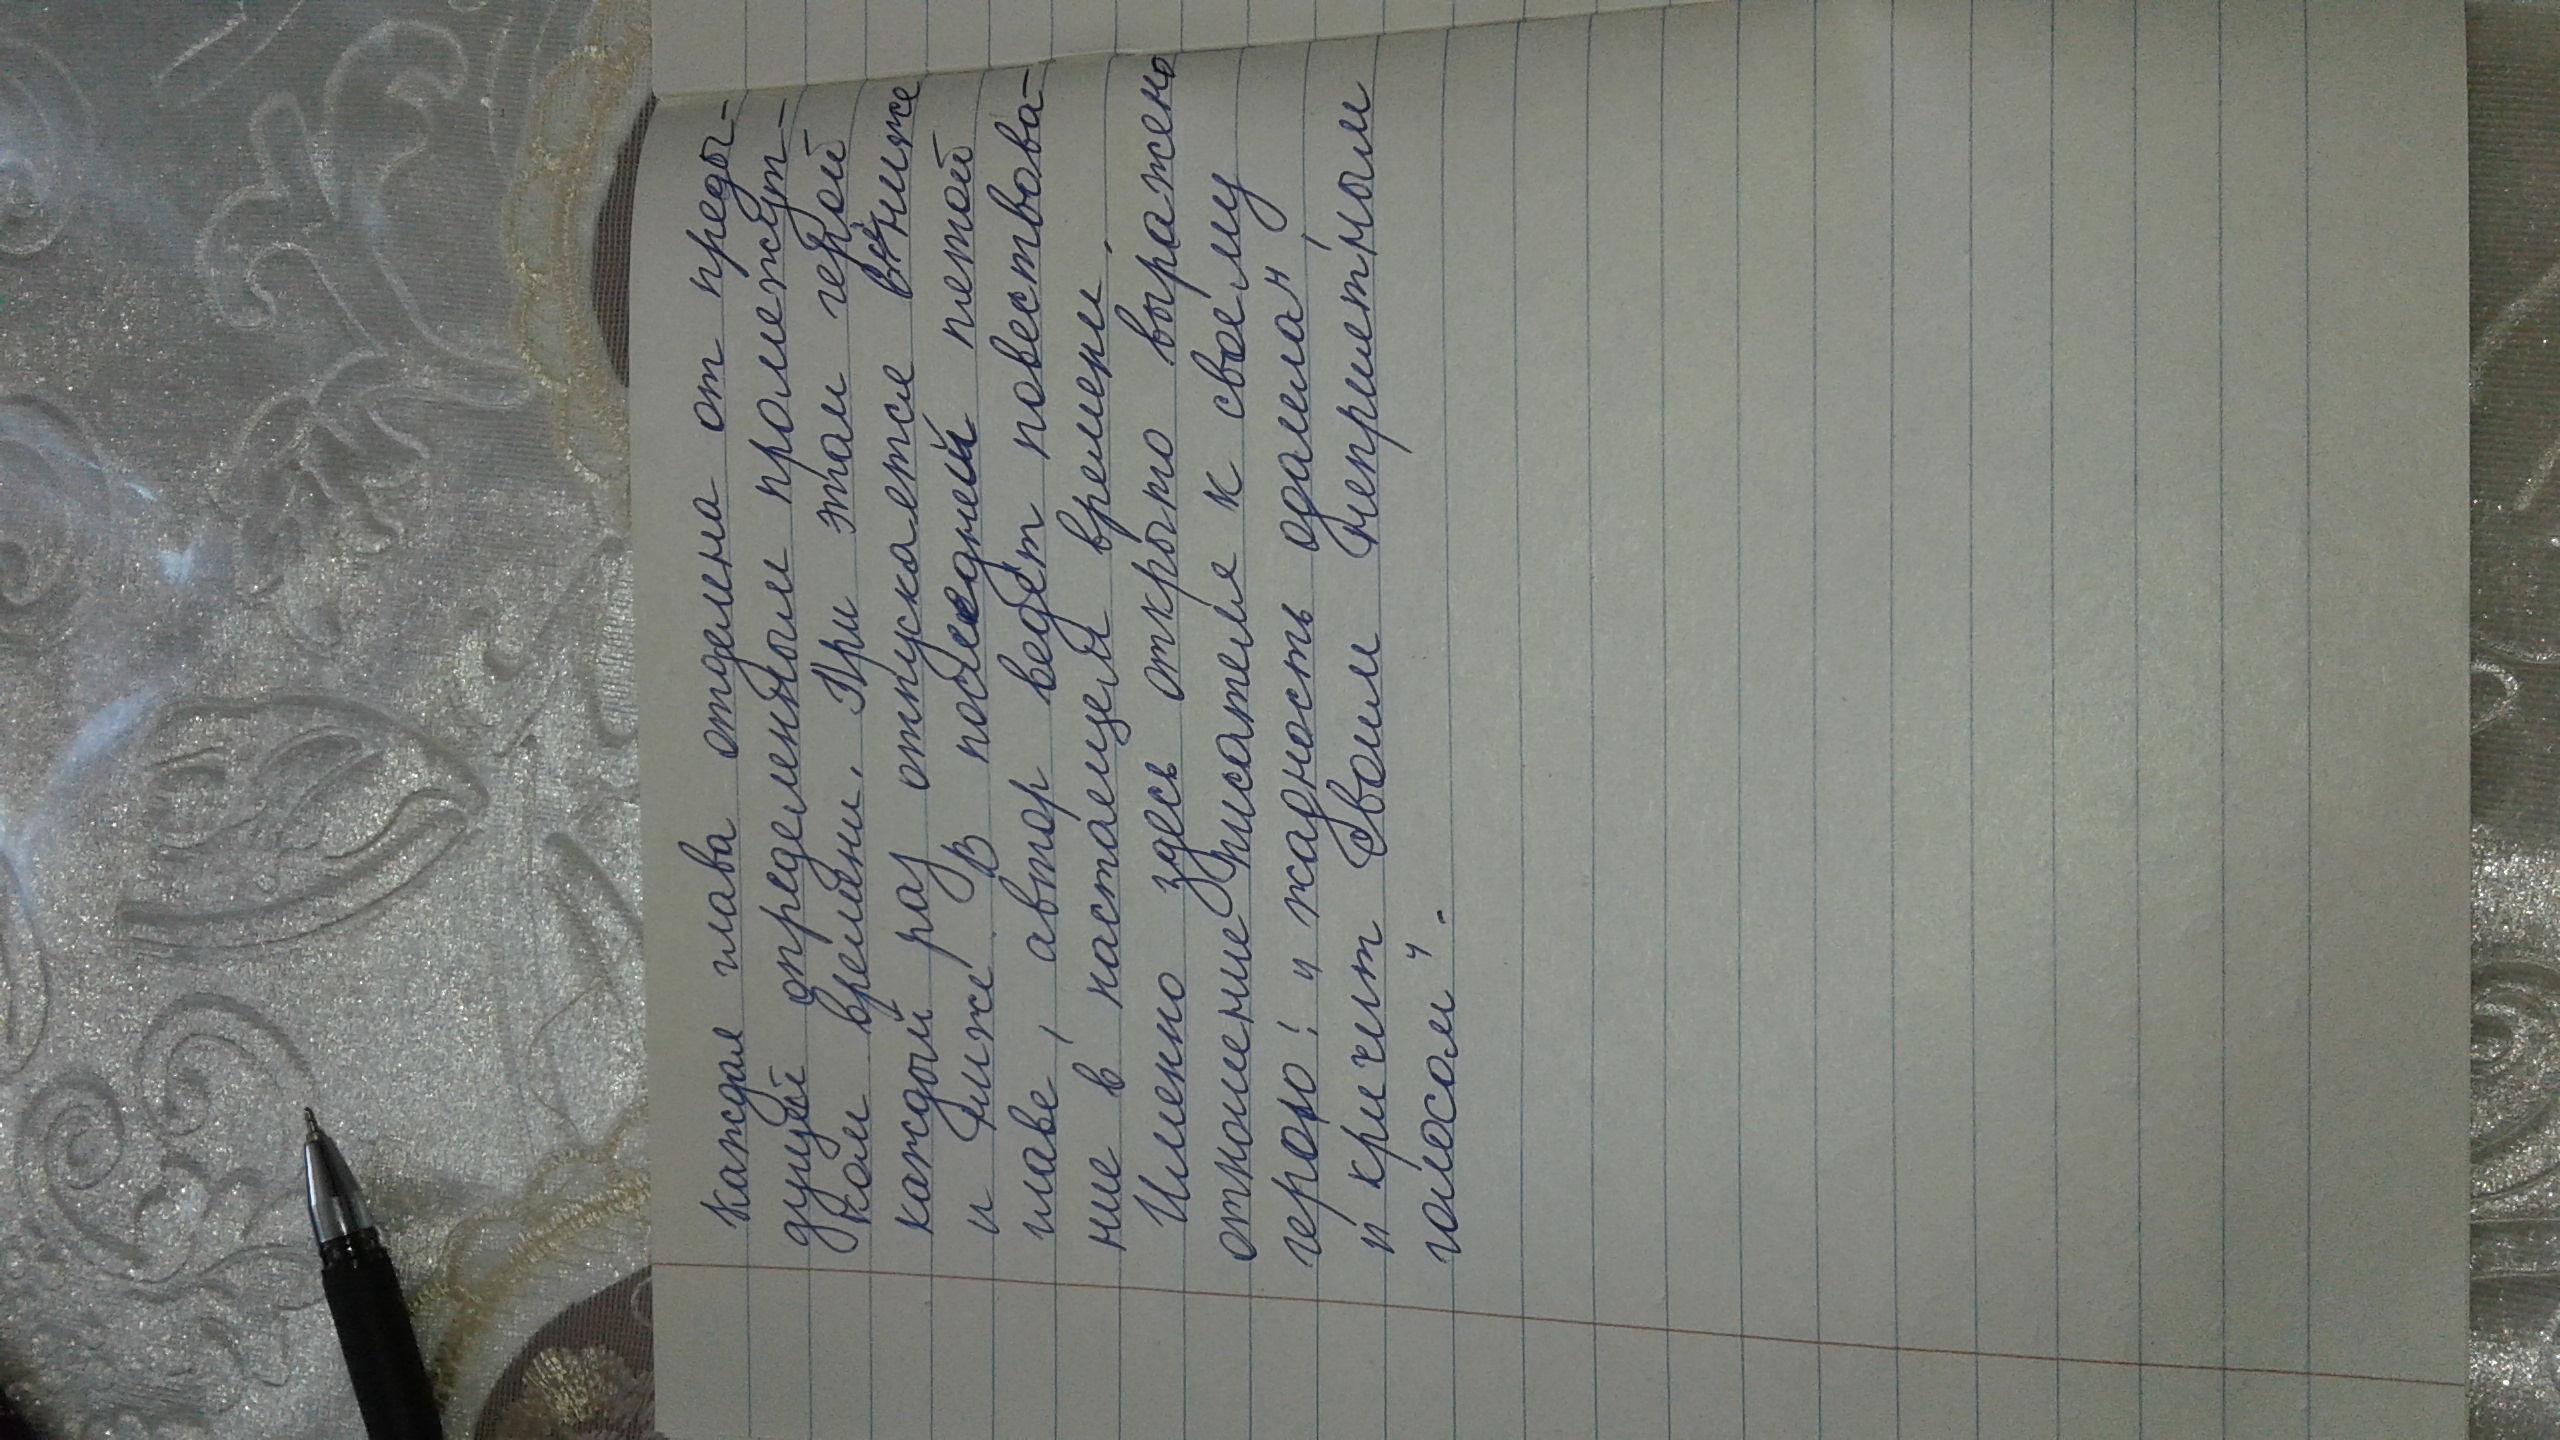 каждая глава отделина от преды-
дущей определенным промежут-
ком времени. При этом герой
каждый раз отпускается всё ниже
и ниже. В последней пятой
главе, автор ведёт повествова-
ние в настоящем времени.
Именно здесь открыто выражено
отношение писателя к своему
герою: "жадность одалела",
и кричит своим "неприятным
голосом".